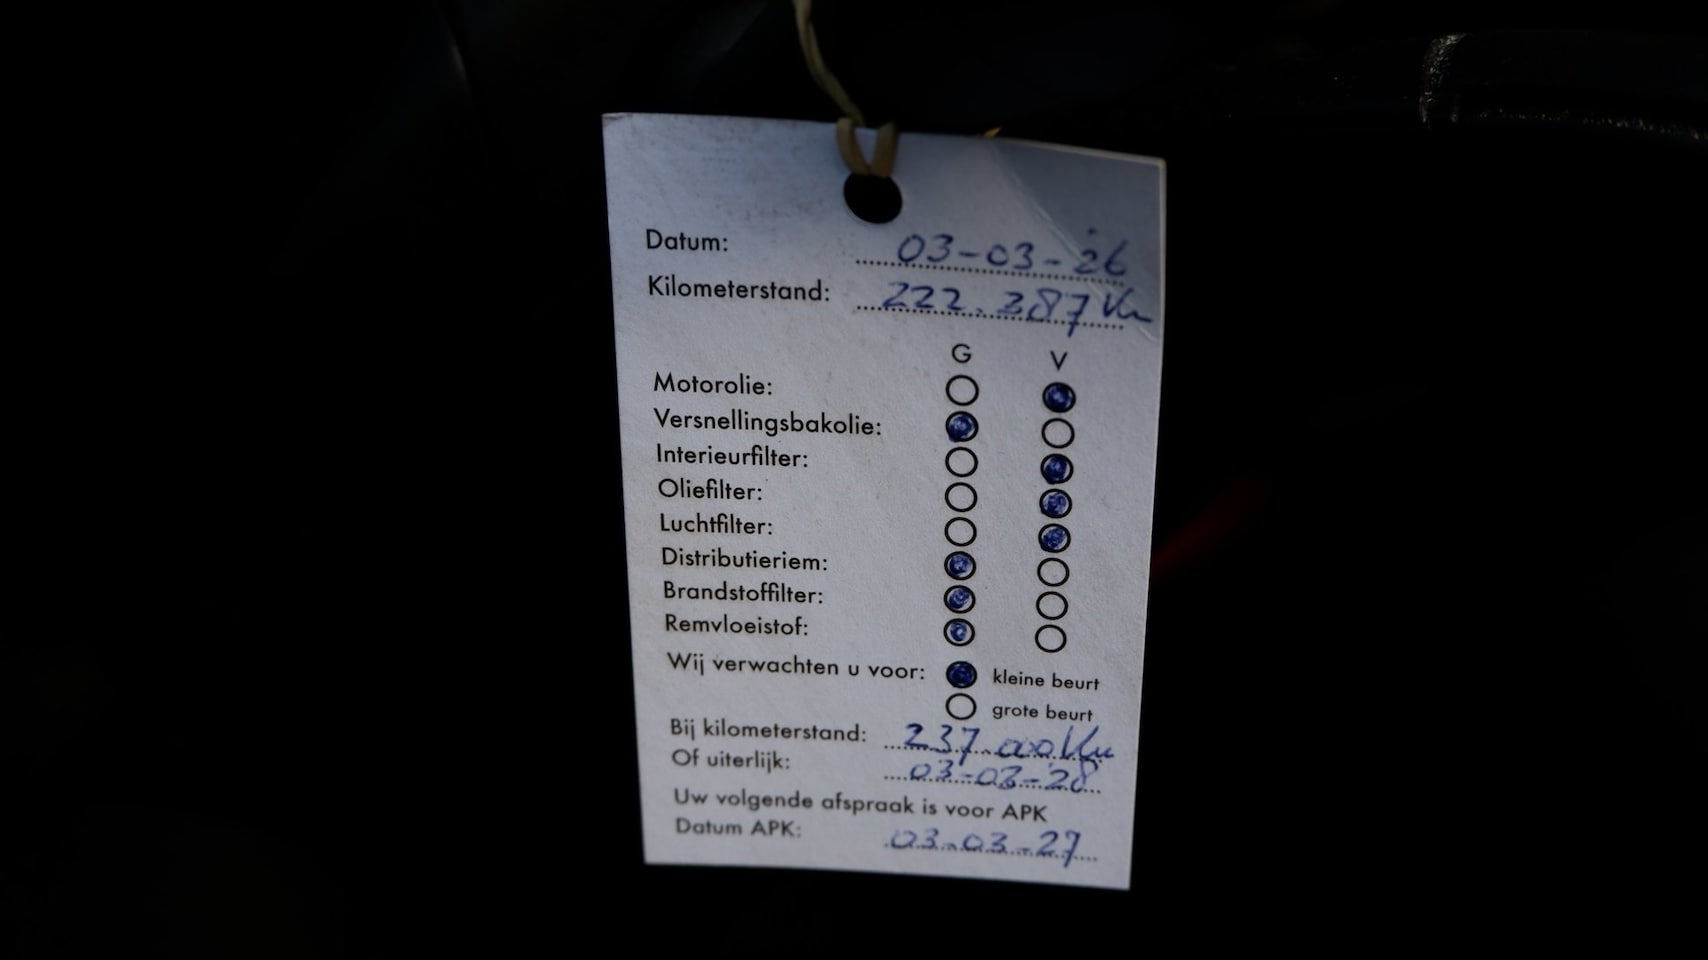 Datum: 03-03-26
Kilometerstand: 222.387 Km
G V
Motorolie:
Versnellingsbakolie:
Interieurfilter:
Oliefilter:
Luchtfilter:
Distributieriem:
Brandstoffilter:
Remvloeistof:
Wij verwachten u voor: kleine beurt
grote beurt
Bij kilometerstand: 237.000 Km
Of uiterlijk: 03-03-28
Uw volgende afspraak is voor APK
Datum APK: 03-03-27